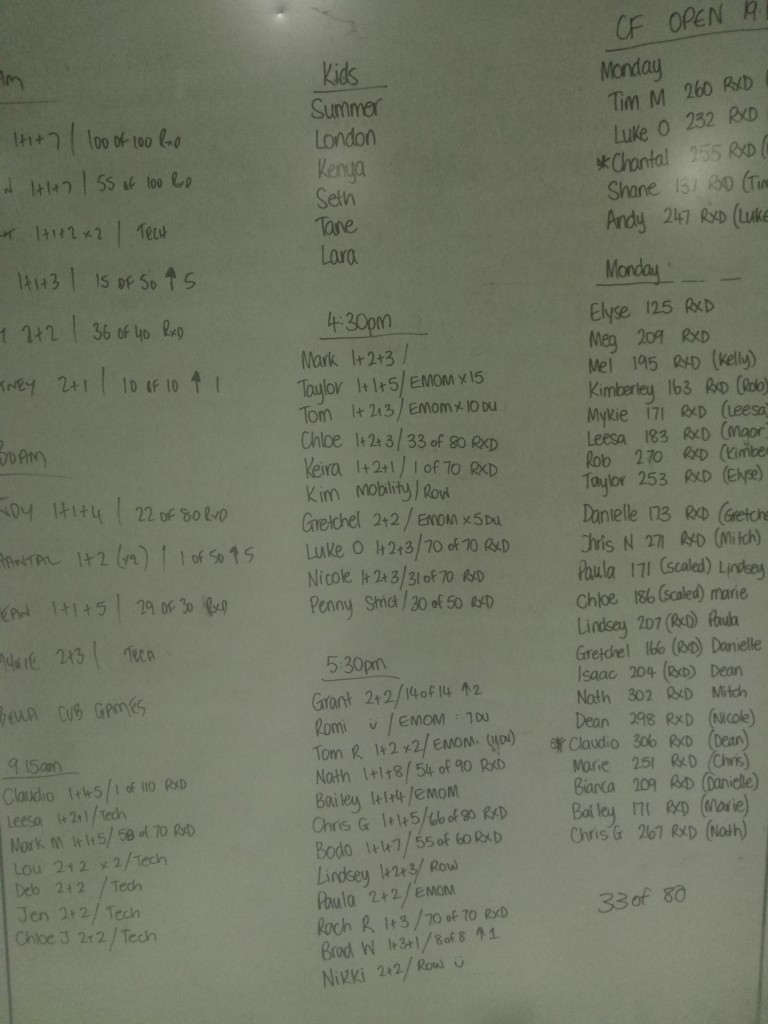 AM
1+1+7 / 100 of 100 RxD
N 1+1+7 / 55 of 100 RxD
1+1+2 x2 / TECH
1+1+3 / 15 OF 50 ↑ 5
2+2 / 36 of 40 RxD
TNEY 2+1 / 10 OF 10 ↑ 1
30AM
NDY 1+1+4 / 22 OF 80 RxD
HANTAL 1+2 (x2) / 1 of 50 ↑ 5
EAN 1+1+5 / 29 OF 30 RxD
2+3 / TECH
BELLA CUB GAMES
9:15am
Claudio 1+4+5/1 of 110 RXD
Leesa 1+2+1/Tech
Mark M 1+1+5/58 of 70 RXD
Lou 2+2 x2/Tech
Deb 2+2 /Tech
Jen 2+2/ Tech
Chloe J 2+2/Tech
Kids
Summer
London
Kenya
Seth
Tane
Lara
4:30pm
Mark 1+2+3 /
Taylor 1+1+5/ EMOM x 15
Tom 1+2+3/ EMOM x 10 DU
Chloe 1+2+3/33 of 80 RXD
Keira 1+2+1/ 1 of 70 RXD
Kim Mobility/Row
Gretchel 2+2/ EMOM x5 DU
Luke O 1+2+3/70 of 70 RXD
Nicole 1+2+3/31 of 70 RXD
Penny Strict/30 of 50 RXD
5:30pm
Grant 2+2/14 of 14 ↑2
Romi / EMOM : 7DU
Tom R 1+2 x2/ EMOM. (11DU)
Nath 1+1+8/54 of 90 RXD
Bailey 1+1+4/EMOM
Chris G 1+1+5/66 of 80 RXD
Bodo 1+4+7/55 of 60 RXD
Lindsey 1+2+3/ Row
Paula 2+2/ EMOM
Rach R 1+3/70 of 70 RXD
Brad W 1+3+1/8 of 8 ↑1
Nikki 2+2/Row
CF OPEN 19.1
Monday
Tim M 260 RXD (
Luke O 232 RXD
*Chantal 255 RXD (
Shane 137 RXD (Tim
Andy 247 RXD (Luke
Monday
Elyse 125 RXD
Meg 209 RXD
Mel 195 RXD (Kelly)
Kimberley 163 RXD (Rob)
Mykie 171 RXD (Leesa
Leesa 183 RXD
Rob 270 RXD (Kimbe
Taylor 253 RXD (Elyse)
Danielle 173 RXD (Gretche
Chris N 271 RXD (Mitch)
Paula 171 (scaled) Lindsey
Chloe 186 (scaled) marie
Lindsey 207 (RXD) Paula
Gretchel 166 (RXD) Danielle
Isaac 204 (RXD) Dean
Nath 302 RXD Mitch
Dean 298 RXD (Nicole)
*Claudio 306 RXD (Dean)
Marie 251 RXD (Chris)
Bianca 209 RXD (Danielle)
Bailey 171 RXD (Marie)
Chris G 267 RXD (Nath)
33 of 80